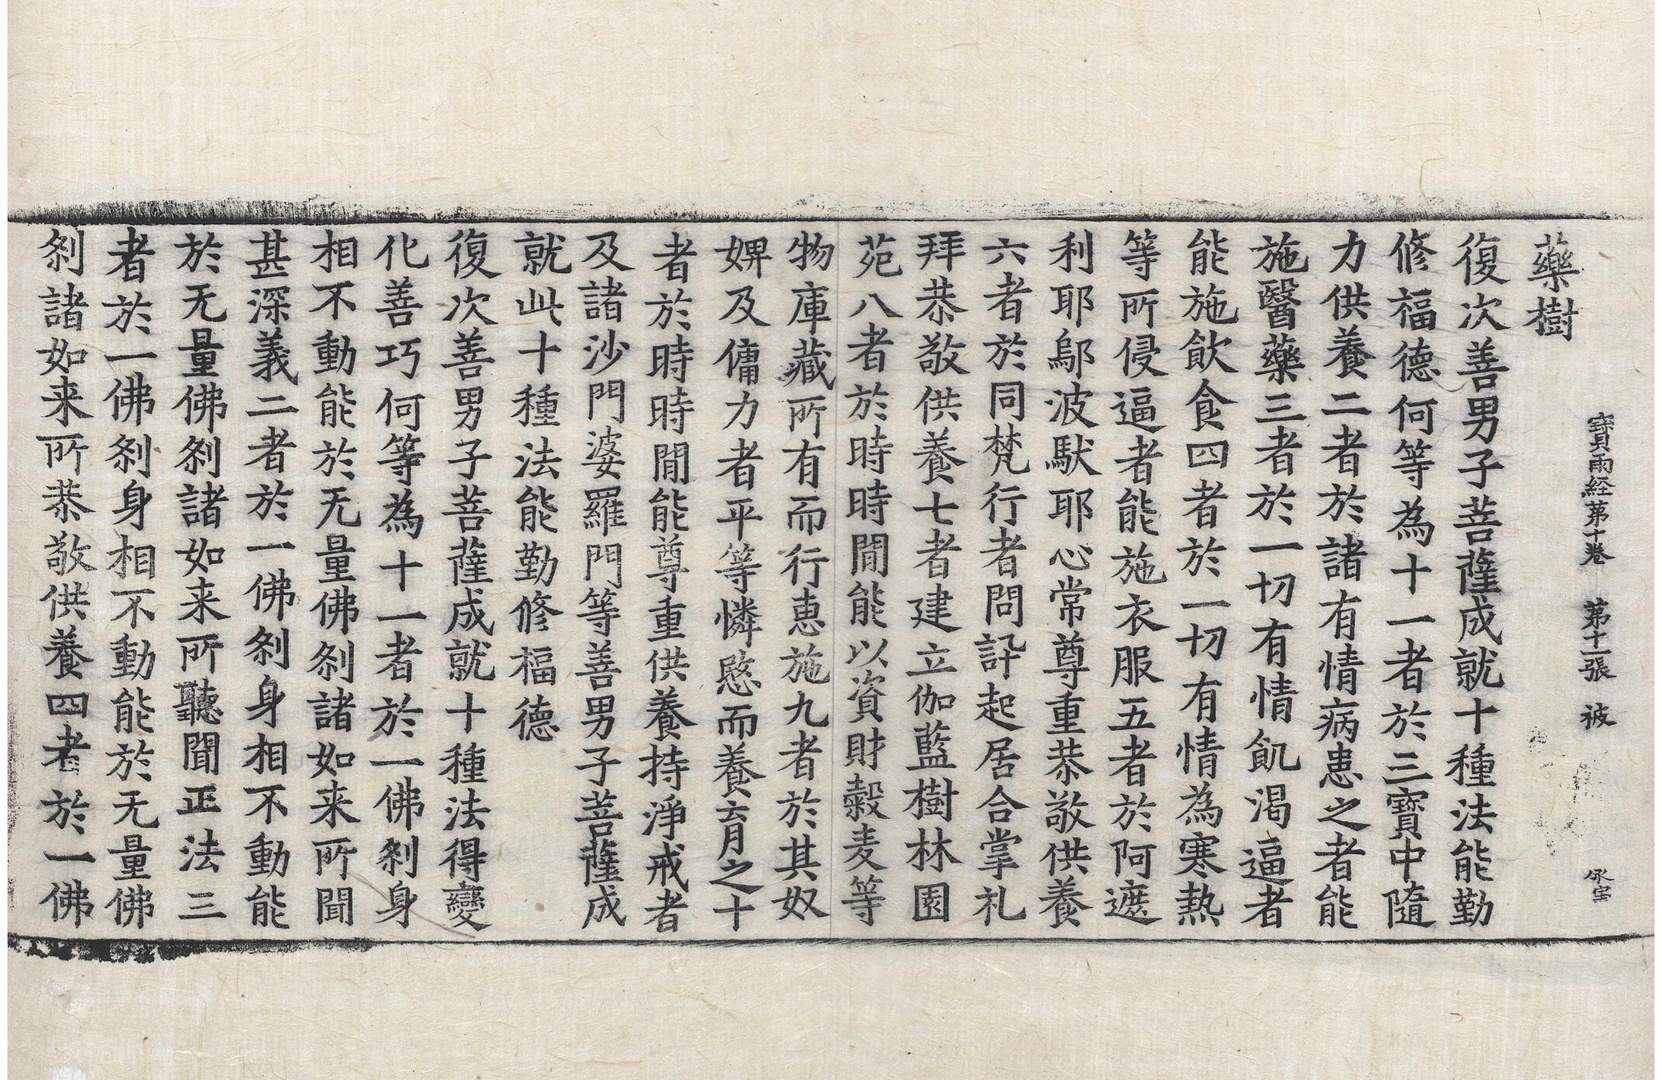 寳雨経第十卷　第十一張　被
藥樹
復次善男子菩薩成就十種法能勤
修福德何等為十一者於三寶中隨
力供養二者於諸有情病患之者能
施醫藥三者於一切有情飢渴逼者
能施飲食四者於一切有情為寒熱
等所侵逼者能施衣服五者於阿遮
利耶鄔波馱耶心常尊重恭敬供養
六者於同梵行者問訊起居合掌礼
拜恭敬供養七者建立伽藍樹林園
苑八者於時時間能以資財穀麦等
物庫藏所有而行惠施九者於其奴
婢及傭力者平等憐愍而養育之十
者於時時間能尊重供養持淨戒者
及諸沙門婆羅門等善男子菩薩成
就此十種法能勤修福德
復次善男子菩薩成就十種法得變
化善巧何等為十一者於一佛刹身
相不動能於无量佛刹諸如来所聞
甚深義二者於一佛刹身相不動能
於无量佛刹諸如来所聽聞正法三
者於一佛刹身相不動能於无量佛
刹諸如来所恭敬供養四者於一佛